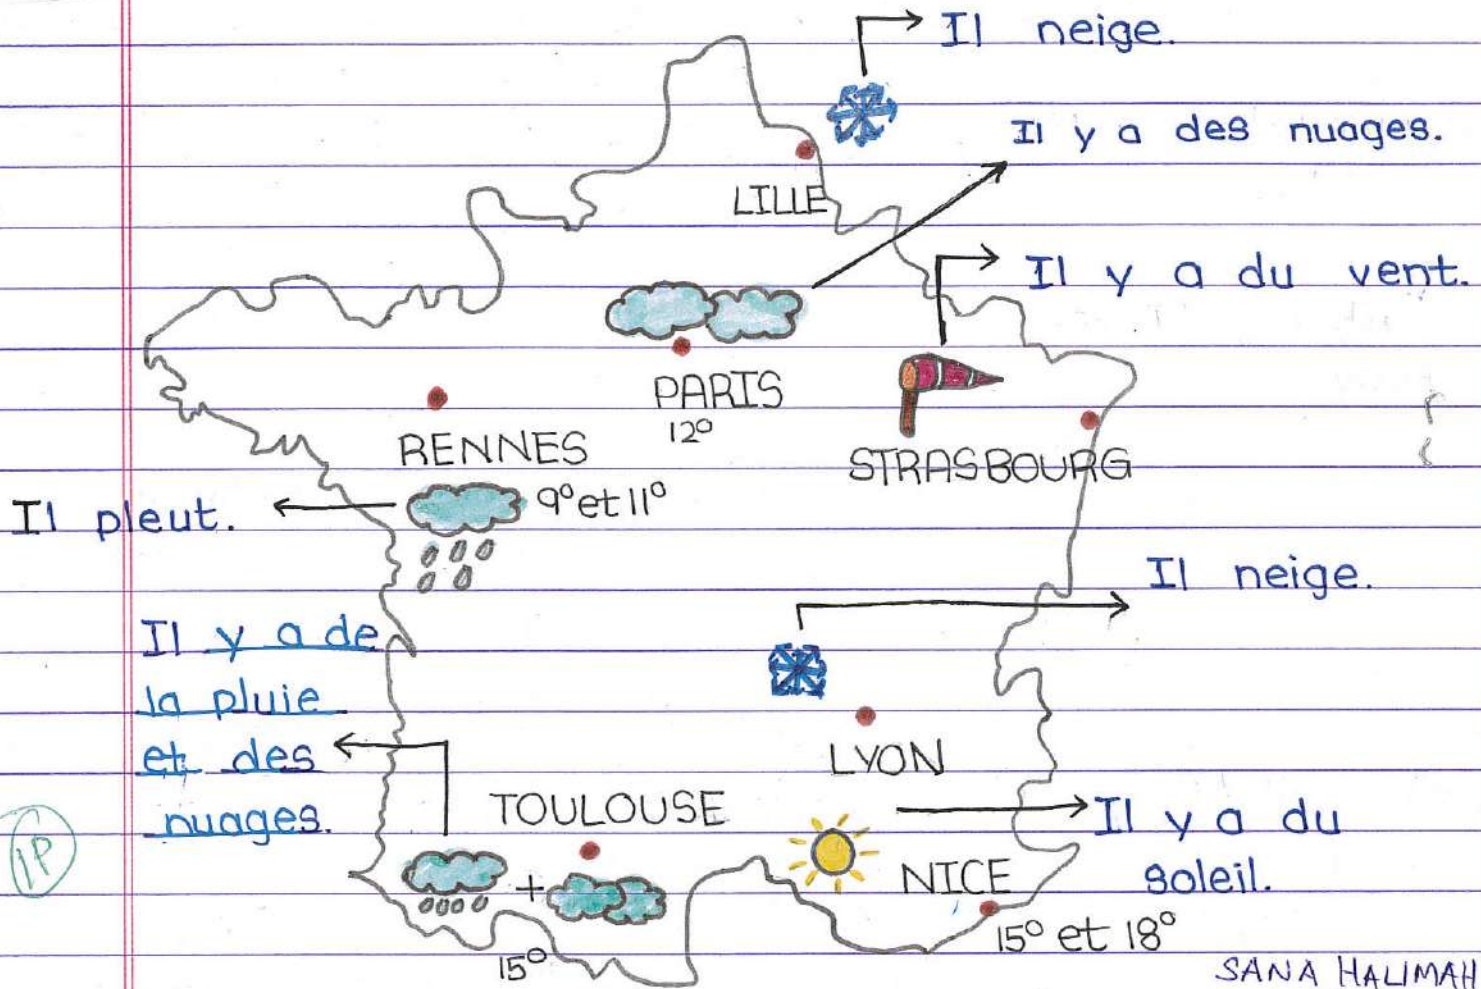 Il neige.
Il y a des nuages.
LILLE
Il y a du vent.
PARIS
12°
RENNES
STRASBOURG
9° et 11°
Il pleut.
Il neige.
Il y a de
la pluie
et des
nuages.
LYON
TOULOUSE
Il y a du
soleil.
NICE
1P
15° et 18°
15°
SANA HALIMAH